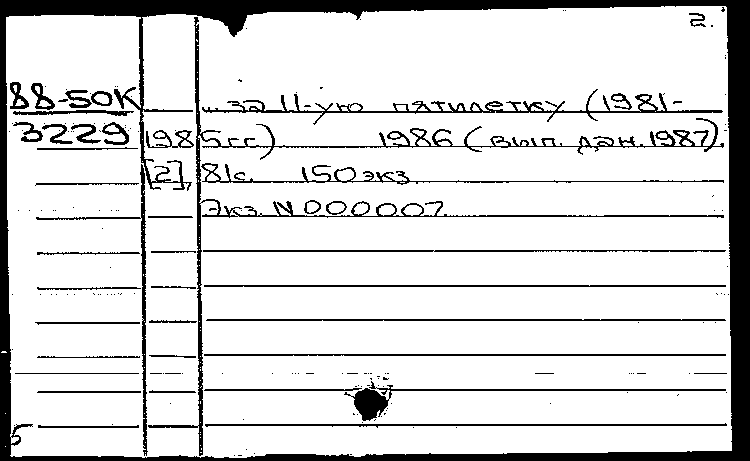 2.
88-50К ... за 11-ую пятилетку (1981-
3229 1985гг). 1986 (вып. дан. 1987).
[2], 81с. 150 экз.
Экз. N 000007.
5